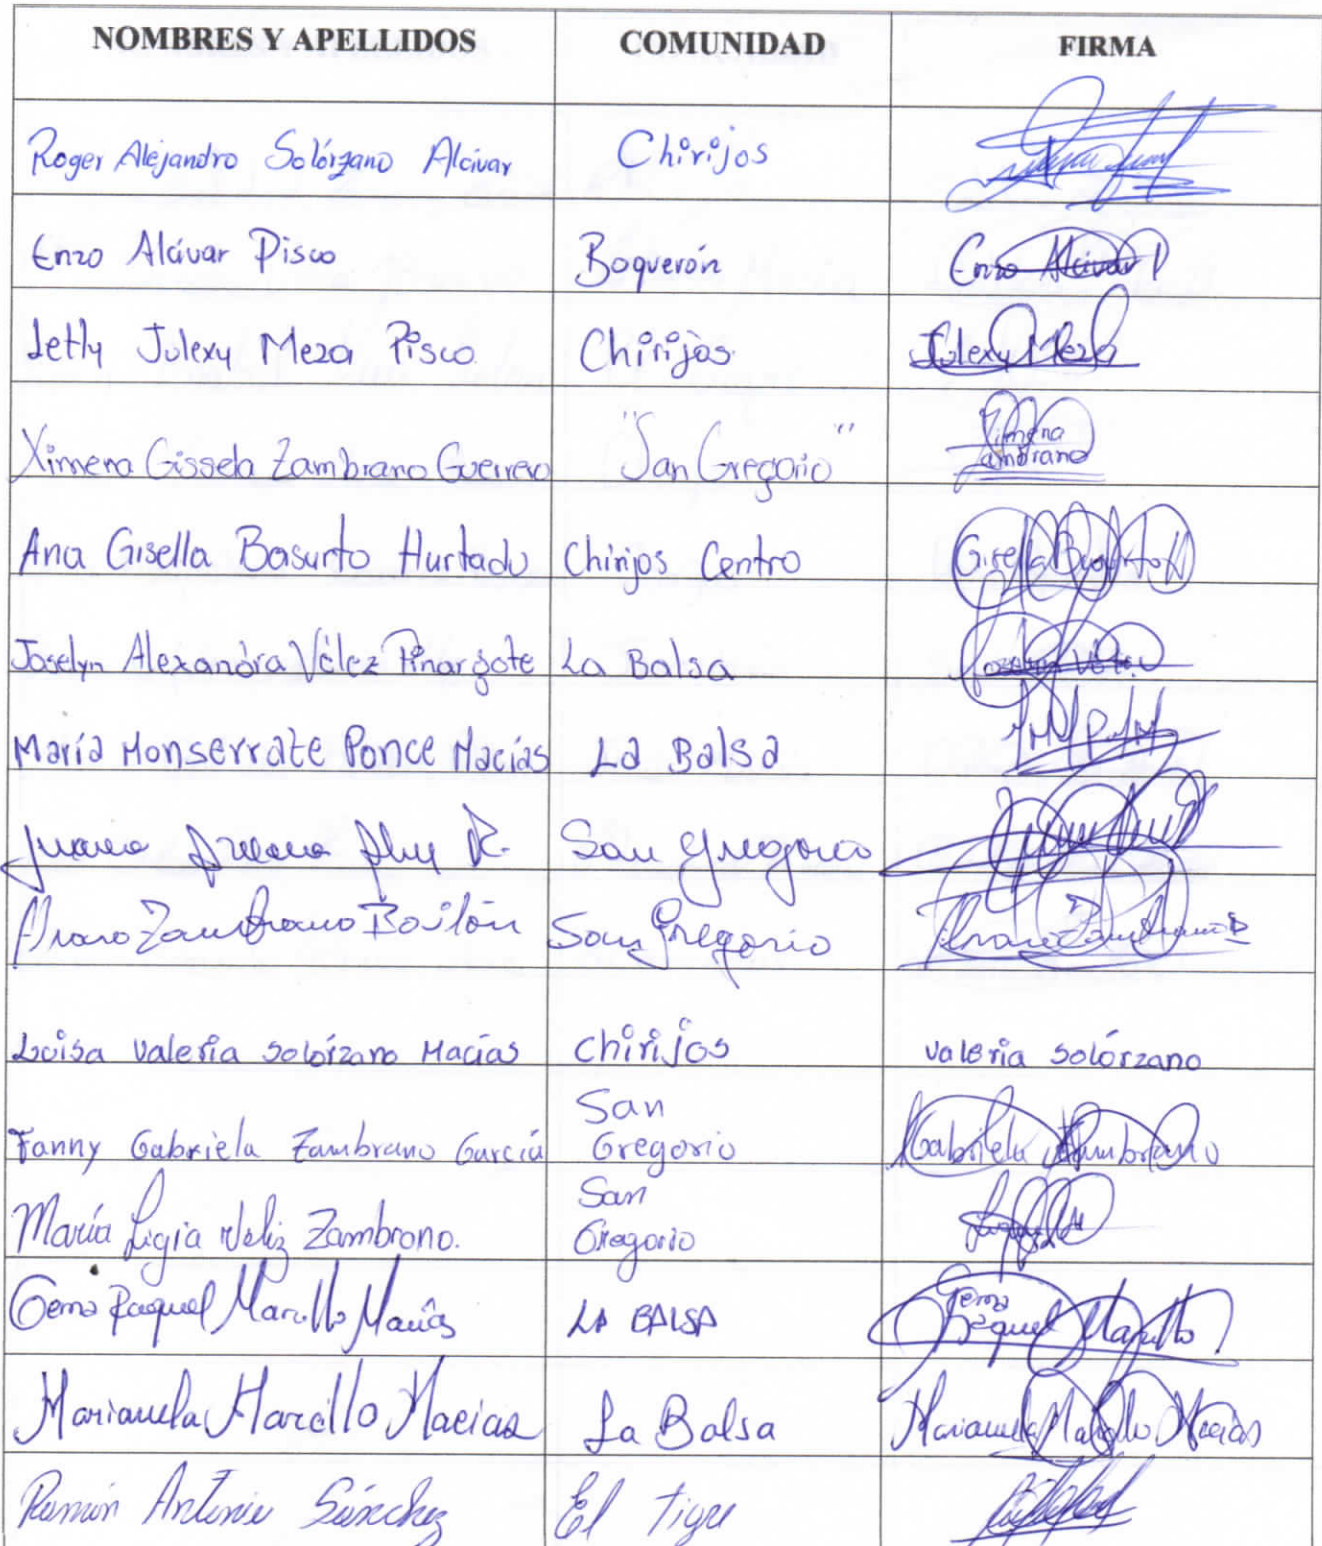 NOMBRES Y APELLIDOS COMUNIDAD FIRMA
Roger Alejandro Solórzano Alcívar Chirijos
Enzo Alcívar Pisco Boquerón Enzo Alcívar P
Jetly Julexy Meza Pisco Chirijos Julexy Meza
Ximena Gissela Zambrano Guerrero "San Gregorio" Ximena Zambrano
Ana Gisella Basurto Hurtado Chirijos Centro Gisella Basurto H
Joselyn Alexandra Vélez Pinargote La Balsa Joselyn Vélez
María Monserrate Ponce Macías La Balsa
San Gregorio
Zambrano Bailón San Gregorio Zambrano B
Luisa Valeria Solórzano Macías Chirijos Valeria Solórzano
Fanny Gabriela Zambrano García San Gregorio Gabriela Zambrano
María Ligia Veliz Zambrano. San Gregorio
Gema Raquel Marcillo Macías LA BALSA Gema Raquel Marcillo
Marianela Marcillo Macias La Balsa Marianela Marcillo Macias
Ramón Antonio Sánchez El Tigre